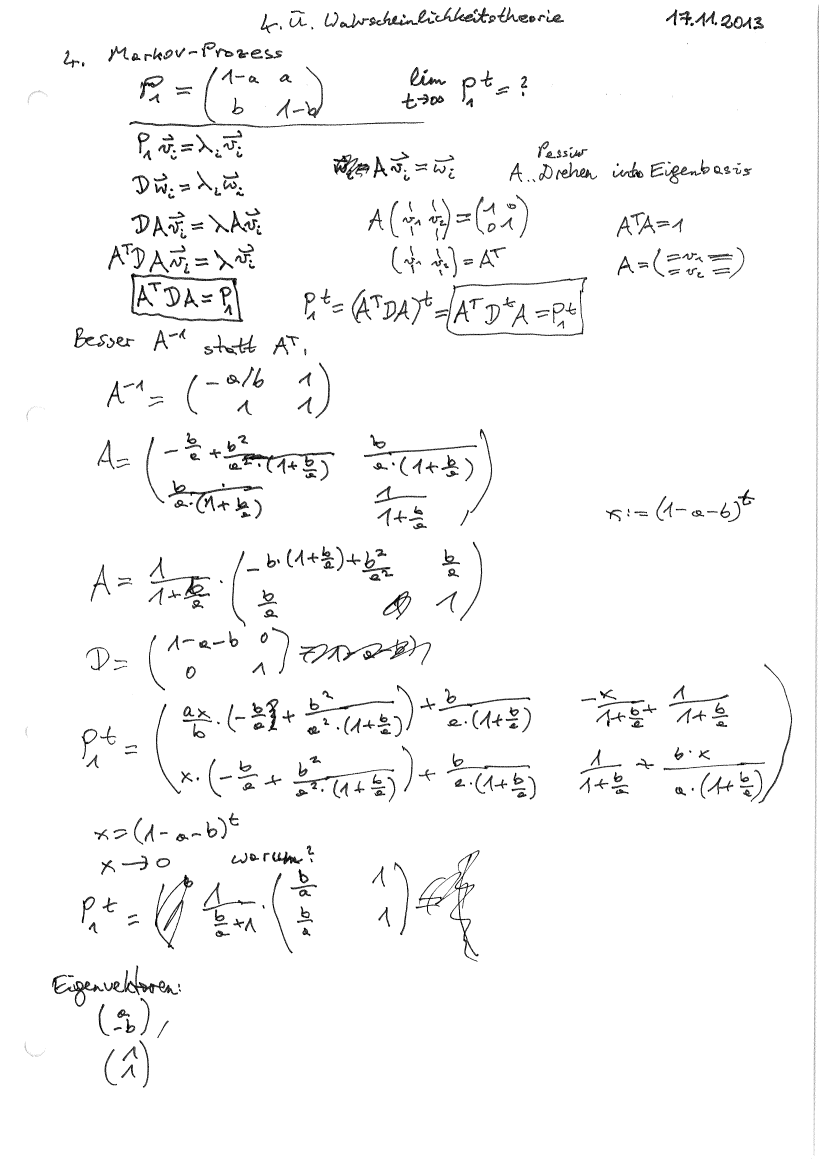 4. Ü. Wahrscheinlichkeitstheorie 17.11.2013
4. Markov-Prozess
P₁ = (1-a a; b 1-b) lim t→∞ P₁ᵗ = ?
P₁ v⃗ᵢ = λᵢ v⃗ᵢ A v⃗ᵢ = w⃗ᵢ A.. Drehen Eigenbasis
D w⃗ᵢ = λᵢ w⃗ᵢ
D A v⃗ᵢ = λ A v⃗ᵢ A (v₁ v₂) = (1 0; 0 1) AᵀA = 1
AᵀD A v⃗ᵢ = λ v⃗ᵢ (v₁ v₂) = Aᵀ A = (= v₁ =; = v₂ =)
AᵀDA = P₁ P₁ᵗ = (AᵀDA)ᵗ = AᵀDᵗA = P₁ᵗ
Besser A⁻¹ statt Aᵀ,
A⁻¹ = (-a/b 1; 1 1)
A = (-b/a + b²/(a²·(1+b/a)) b/(a·(1+b/a)); b/(a·(1+b/a)) 1/(1+b/a)),
x := (1-a-b)ᵗ
A = 1/(1+b/a) · (-b·(1+b/a)+b²/a² b/a; b/a 1)
D = (1-a-b 0; 0 1)
P₁ᵗ = (ax/b · (-b/a + b²/(a²·(1+b/a))) + b/(a·(1+b/a)) -x/(1+b/a) + 1/(1+b/a); x·(-b/a + b²/(a²·(1+b/a))) + b/(a·(1+b/a)) 1/(1+b/a) + b·x/(a·(1+b/a)))
x = (1-a-b)ᵗ
x → 0 warum?
P₁ᵗ = 1/(b/a+1) · (b/a 1; b/a 1)
Eigenvektoren:
(a; -b),
(1; 1)